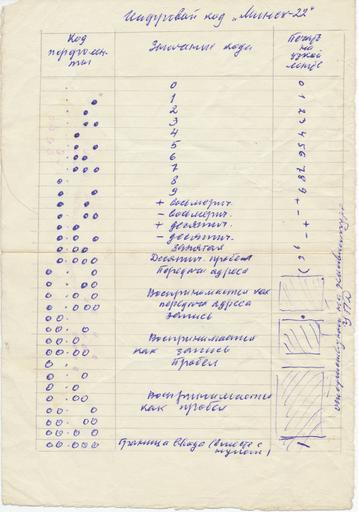 Цифровой код „Минск-22"
Код перфоленты
Значение кода
Печать на узкой ленте
0 0
1 1
2 2
3 3
4 4
5 5
6 6
7 7
8 8
9 9
+ восьмерич. +
- восьмерич. -
+ десятич. +
- десятич. -
запятая ,
Десятич. пробел
Передача адреса )
Воспринимается как
передача адреса
запись
Воспринимается
как запись
Пробел
Воспринимается
как пробел
Граница Ввода (вместе с